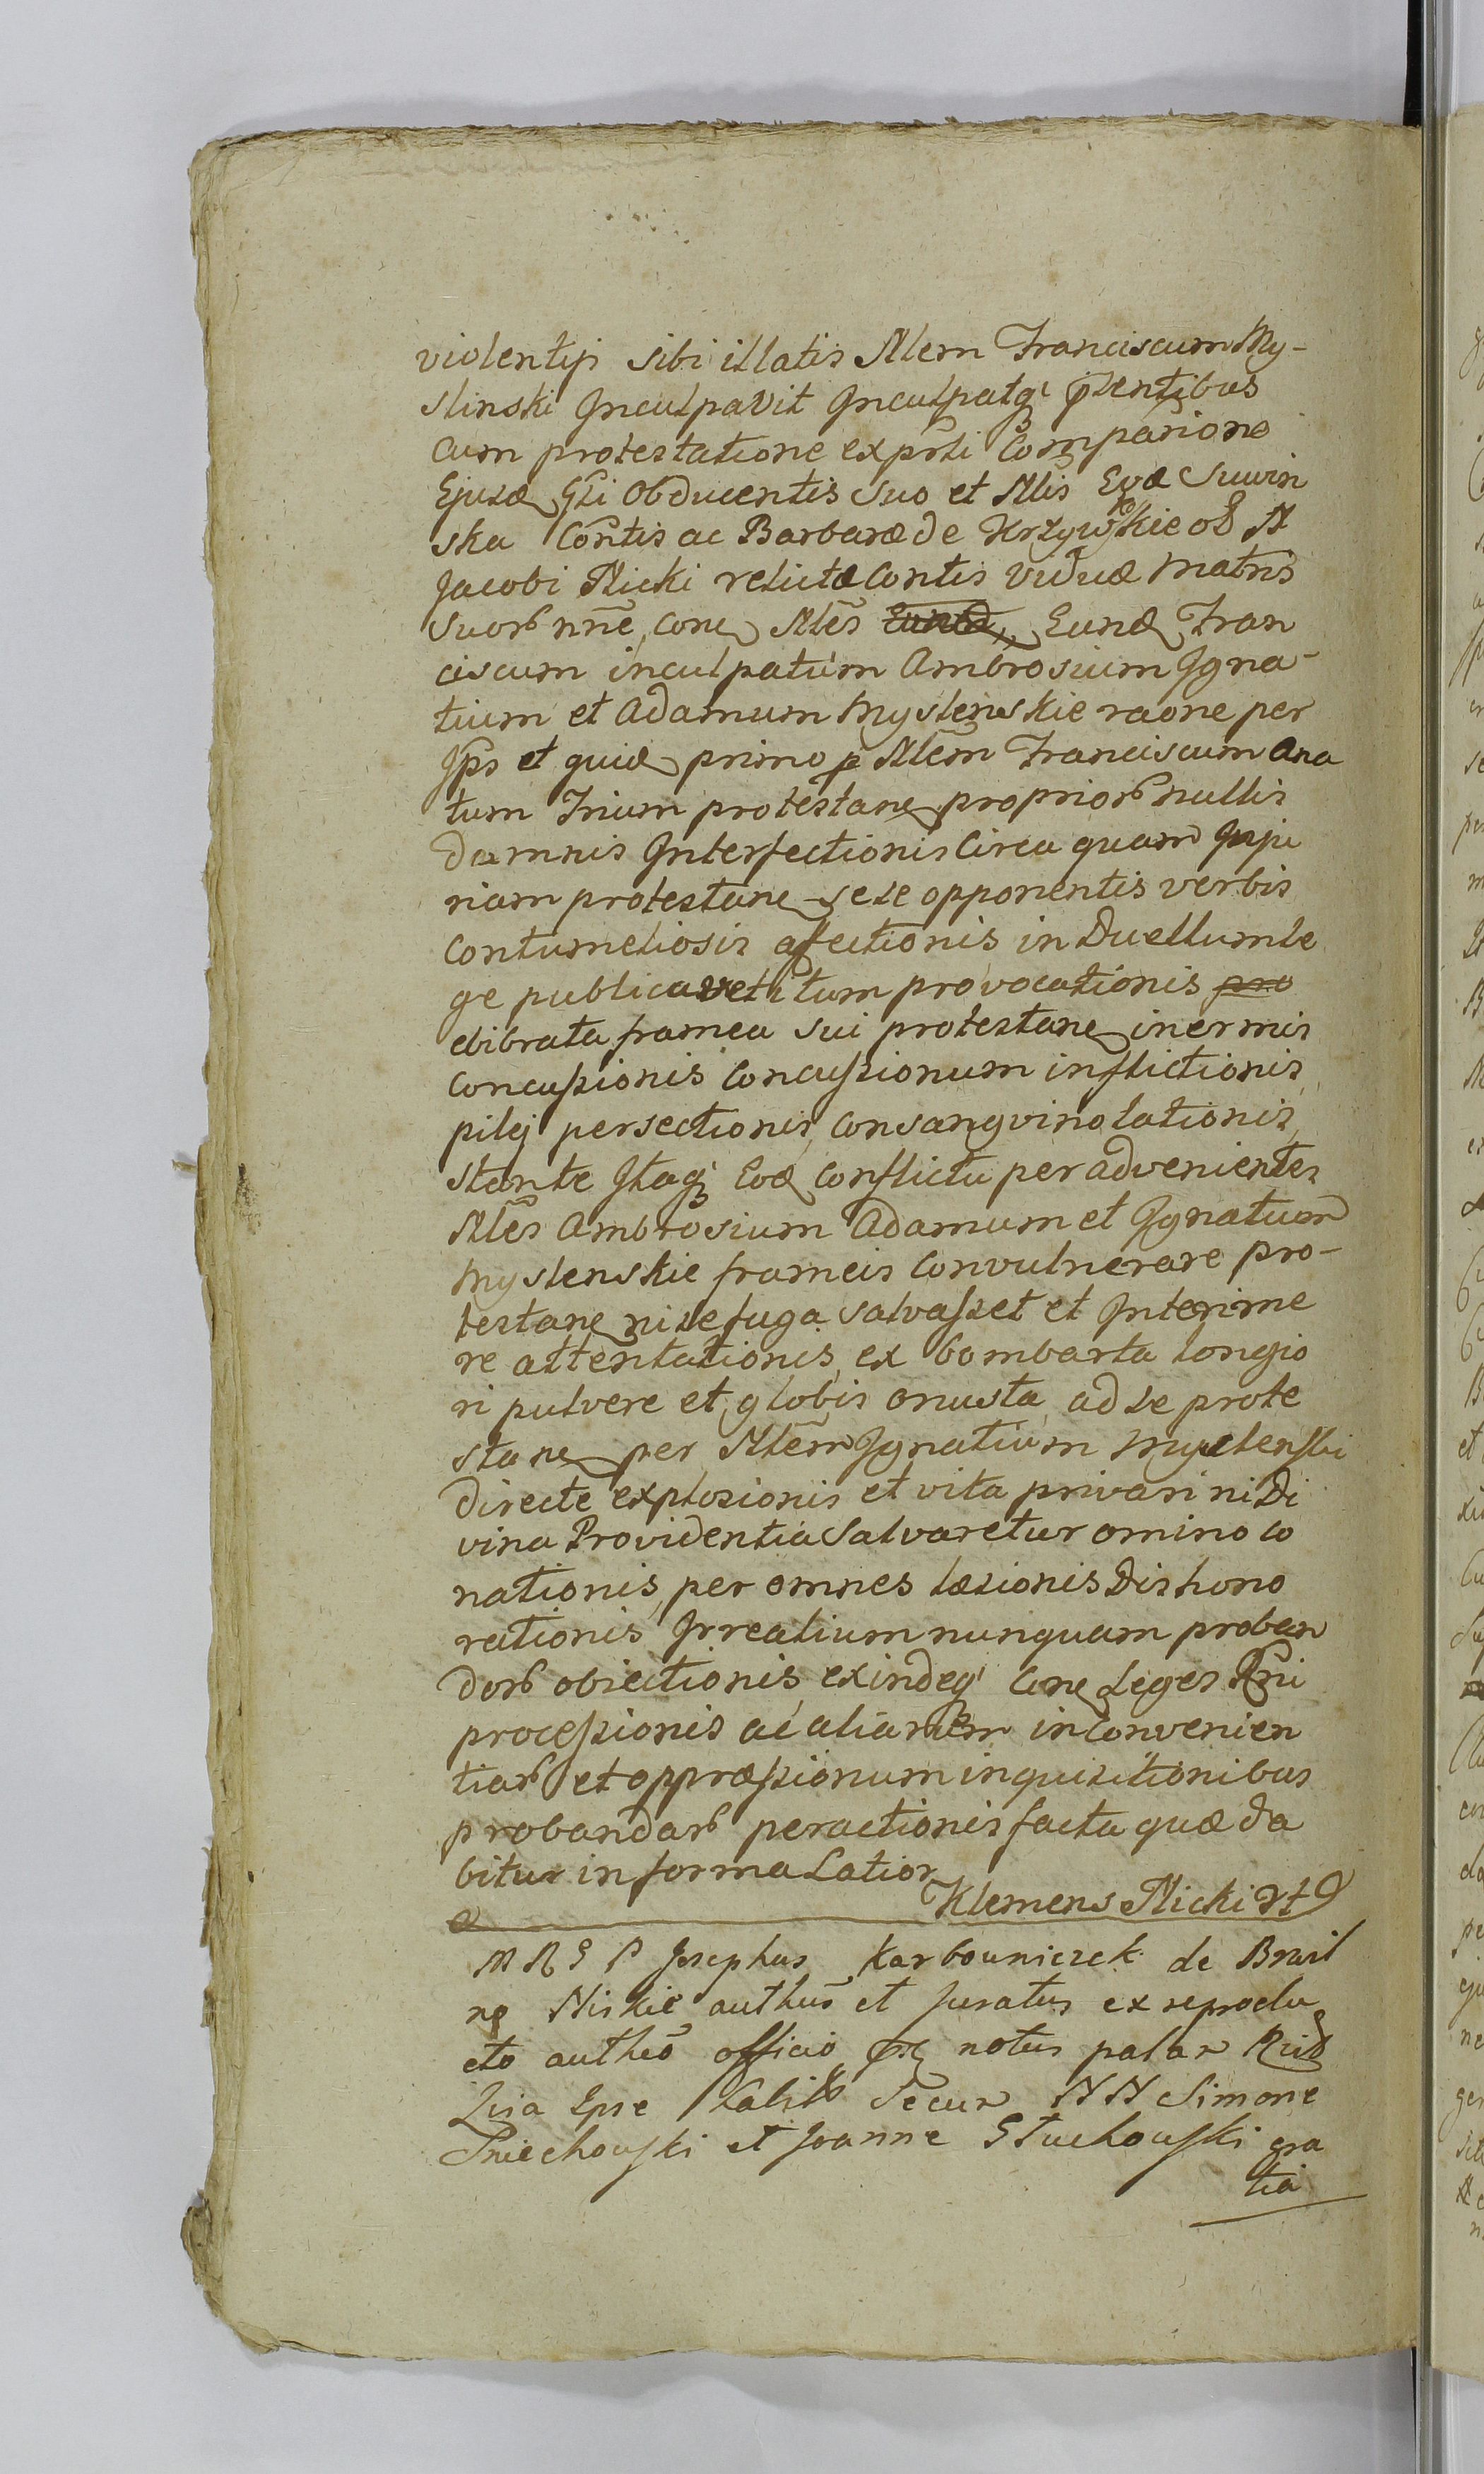 violentijs sibi illatis Mlem Franciscum My-
slinski Inculpavit Inculpatq; pntibus
cum protestatione exprti Comparione
Ejusd Gsi Obducentis suo et Mlis Evæ Suvin
ska Contis ac Barbaræ de Krzywoskie od M
Jacobi Micki relictæ Contis viduæ Matris
suorb nñe, cone Mles Eund Fran
ciscum inculpatum Ambrosium Igna-
tium et Adamum Myslenskie raone per
Ips et quid primo p Mlem Franciscum ana
tum Irium protestane propriorb nullis
damnis Interfectionis Circa quam Inju
riam protestane sese opponentis verbis
Contumeliosis afectionis in Duellum le
ge publica vetitum provocationis pro
ebibrata framea sui protestane inermis
Concussionis Concussionum inflictionis,
pilej persectionis, Consangvinolationis,
stante Itaq; Eod Conflictu per advenientes
Mles Ambrosium Adamum et Ignatium
Myslenskie frameis Convulnerare pro-
testane ni se fuga salvasset et Interime
re attentationis, ex bombarta longio
ri pulvere et globis onusta ad se prote
stane per Mlem Ignatium Myslenski
directe explosionis et vita privari ni Di
vina Providentia Salvaretur omino co
nationis, per omnes læsionis Dishono
rationis Irrealium nunquam proban
dorb obiectionis, exindeq; Cone Leges Rñi
processionis ac aliarum inconvenien
tiarb et oppræssionum inquisitionibus
probandarb peractionis facta quæ da
bitur in forma Latior
Klemens Micki
M R G P Josephus Karbouniczek de Brwil
no Niskie authus et Juratus ex reprodu
cto autheo officio notus palar
Simone
Sniechowski et Joanne Stuchowski gra
tia